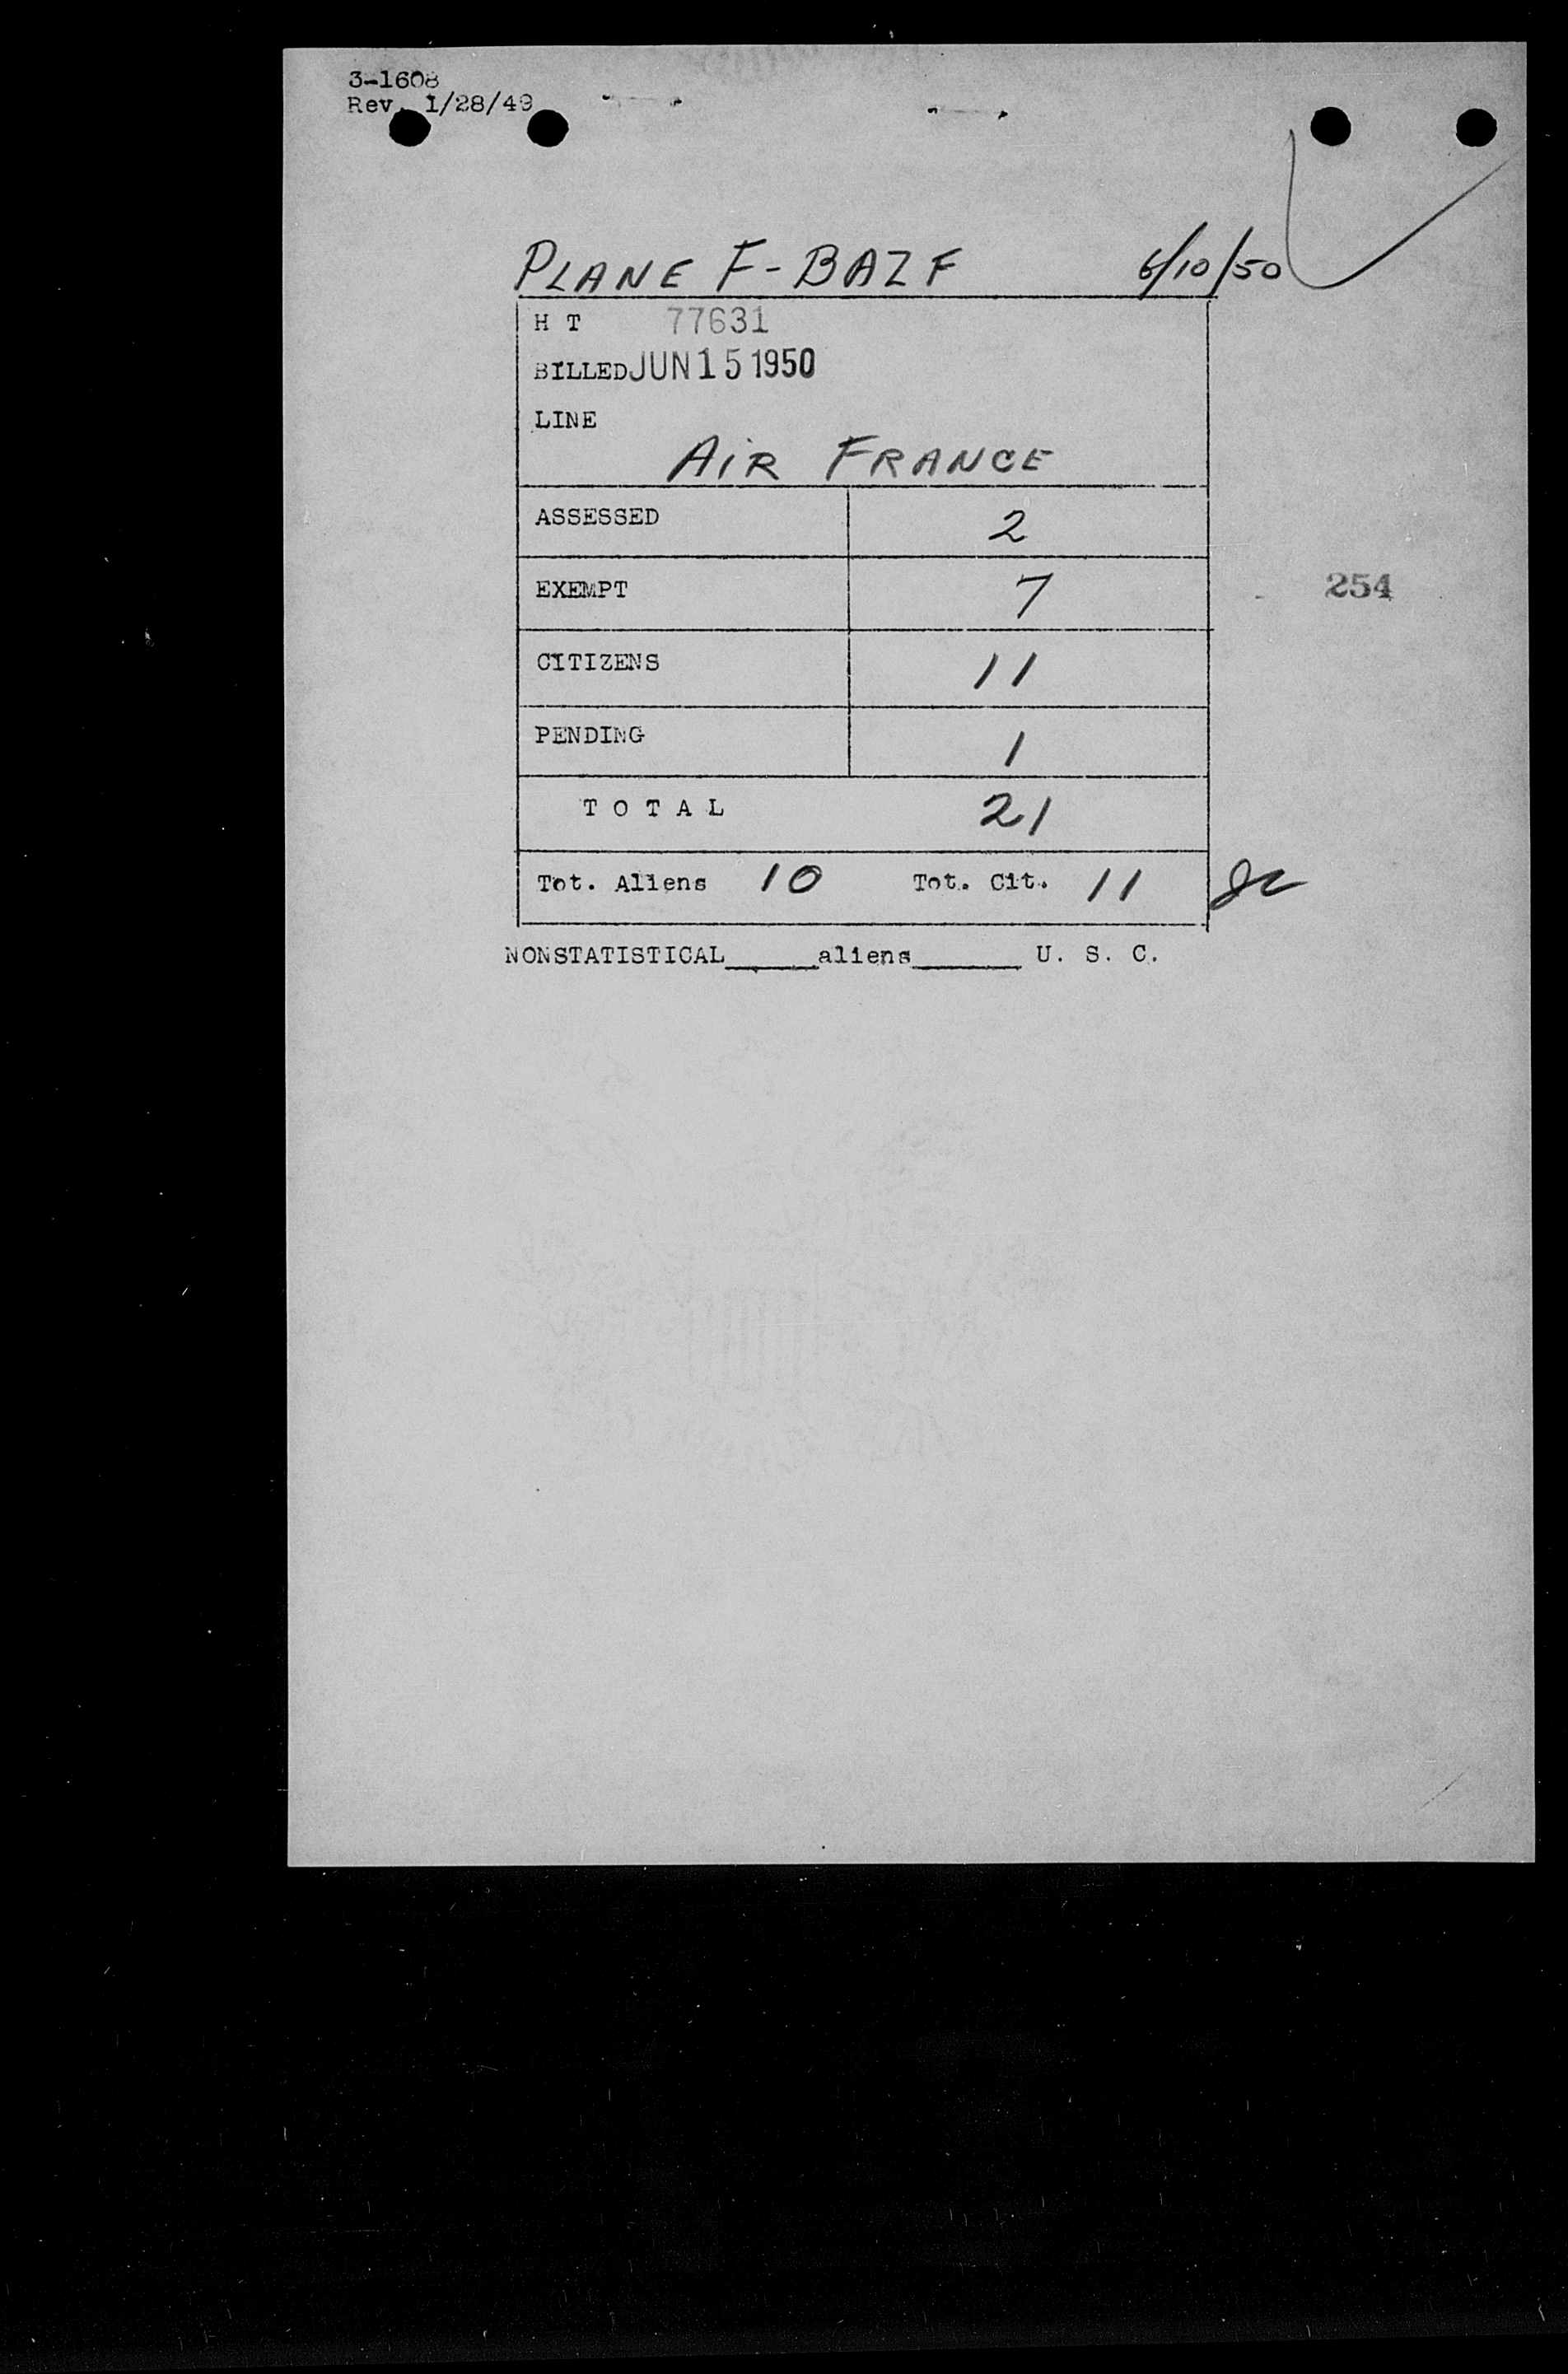 3-1608
Rev. 1/28/49
PLANE F-BAZF 6/10/50
H T 77631
BILLED JUN 15 1950
LINE
AIR FRANCE
ASSESSED 2
EXEMPT 7
254
CITIZENS 11
PENDING 1
T O T A L 21
Tot. Aliens 10 Tot. Cit. 11
NONSTATISTICAL_____aliens______ U. S. C.